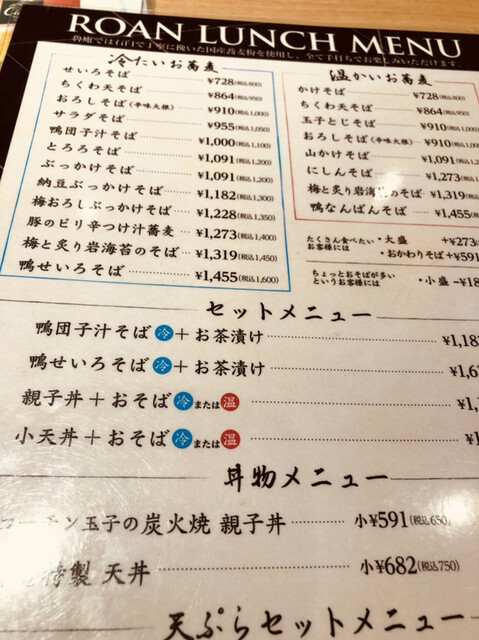 ROAN LUNCH MENU
魯庵では石臼で丁寧に挽いた国産蕎麦粉を使用し、全て手打ちでお楽しみいただけます。
冷たいお蕎麦
せいろそば ¥728(税込800)
ちくわ天そば ¥864(税込950)
おろしそば(辛味大根) ¥910(税込1,000)
サラダそば ¥955(税込1,050)
鴨団子汁そば ¥1,000(税込1,100)
とろろそば ¥1,091(税込1,200)
ぶっかけそば ¥1,091(税込1,200)
納豆ぶっかけそば ¥1,182(税込1,300)
梅おろしぶっかけそば ¥1,228(税込1,350)
豚のピリ辛つけ汁蕎麦 ¥1,273(税込1,400)
梅と炙り岩海苔のそば ¥1,319(税込1,450)
鴨せいろそば ¥1,455(税込1,600)
温かいお蕎麦
かけそば ¥728(税込800)
ちくわ天そば ¥864(税込950)
玉子とじそば ¥910(税込1,000)
おろしそば(辛味大根) ¥910(税込1,00
山かけそば ¥1,091(税込1,2
にしんそば ¥1,273(税込
梅と炙り岩海苔のそば ¥1,319(税込
鴨なんばんそば ¥1,455(税込
たくさん食べたいお客様には ・大盛 +¥273
・おかわりそば +¥591
ちょっとおそばが多いというお客様には ・小盛 -¥18
セットメニュー
鴨団子汁そば 冷 + お茶漬け ¥1,18
鴨せいろそば 冷 + お茶漬け ¥1,6
親子丼 + おそば 冷 または 温 ¥1,
小天丼 + おそば 冷 または 温 ¥
丼物メニュー
ーチン玉子の炭火焼 親子丼 小¥591(税込650)
特製 天丼 小¥682(税込750)
天ぷらセットメニュー